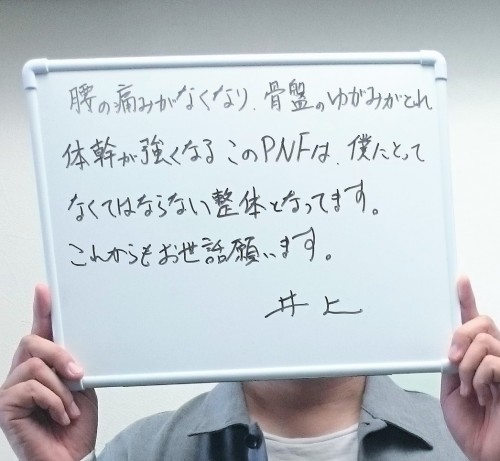 腰の痛みがなくなり、骨盤のゆがみがとれ
体幹が強くなるこのPNFは、僕にとって
なくてはならない整体となってます。
これからもお世話願います。
井上